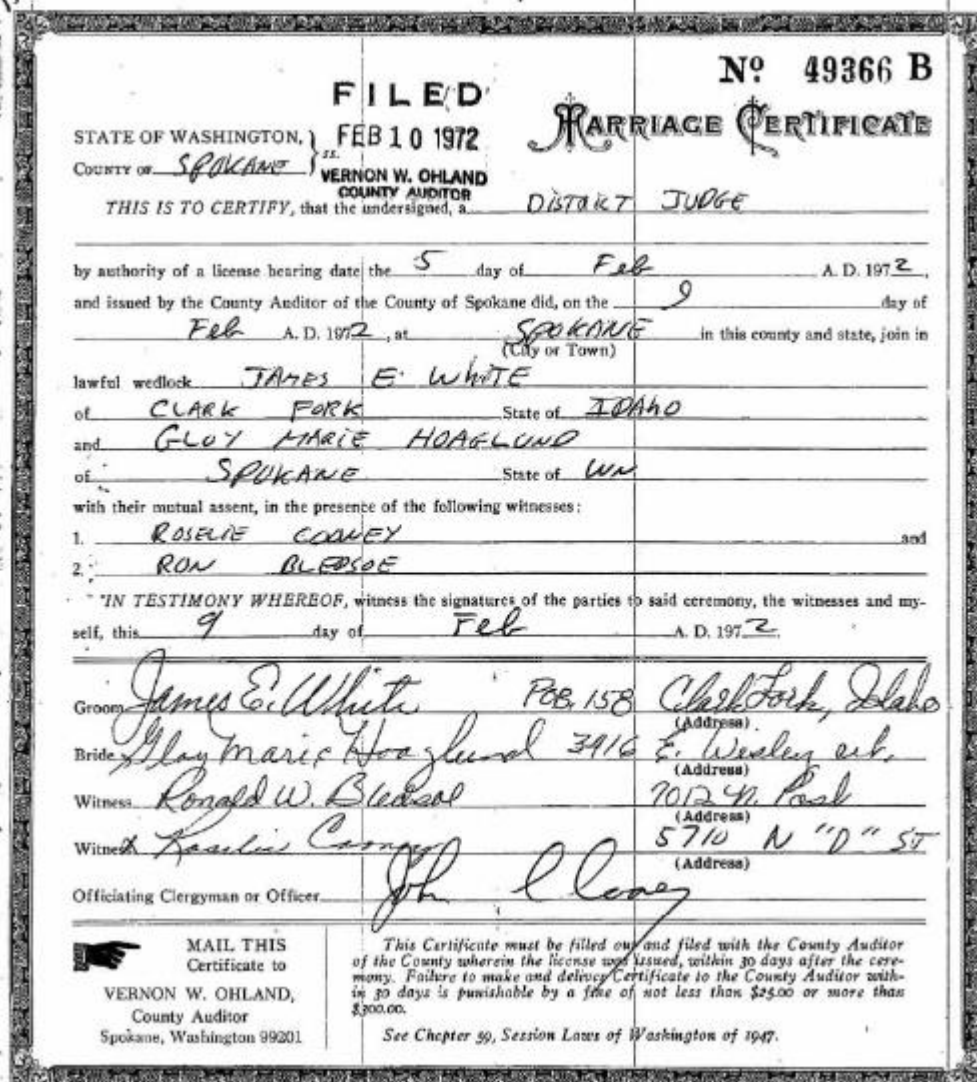 Nº 49366 B
FILED
MARRIAGE CERTIFICATE
STATE OF WASHINGTON, } ss. FEB 10 1972
COUNTY OF SPOKANE
VERNON W. OHLAND
COUNTY AUDITOR
THIS IS TO CERTIFY, that the undersigned, a DISTRICT JUDGE
by authority of a license bearing date the 5 day of Feb A. D. 1972,
and issued by the County Auditor of the County of Spokane did, on the 9 day of
Feb A. D. 1972, at SPOKANE in this county and state, join in
(City or Town)
lawful wedlock JAMES E. WHITE
of CLARK FORK State of IDAHO
and GLOY MARIE HOAGLUND
of SPOKANE State of WN
with their mutual assent, in the presence of the following witnesses:
1. ROSELIE COONEY and
2. RON BLEDSOE
"IN TESTIMONY WHEREOF, witness the signatures of the parties to said ceremony, the witnesses and my-
self, this 9 day of Feb A. D. 1972.
Groom James E. White POB. 158 Clark Fork, Idaho
(Address)
Bride Gloy Marie Hoaglund 3916 E. Wesley
(Address)
Witness Ronald W. Bledsoe 7012 N. Post
(Address)
Witness 5710 N "D" ST
(Address)
Officiating Clergyman or Officer John Cooney
MAIL THIS
Certificate to
VERNON W. OHLAND,
County Auditor
Spokane, Washington 99201
This Certificate must be filled out and filed with the County Auditor
of the County wherein the license was issued, within 30 days after the cere-
mony. Failure to make and deliver Certificate to the County Auditor with-
in 30 days is punishable by a fine of not less than $25.00 or more than
$300.00.
See Chapter 59, Session Laws of Washington of 1947.